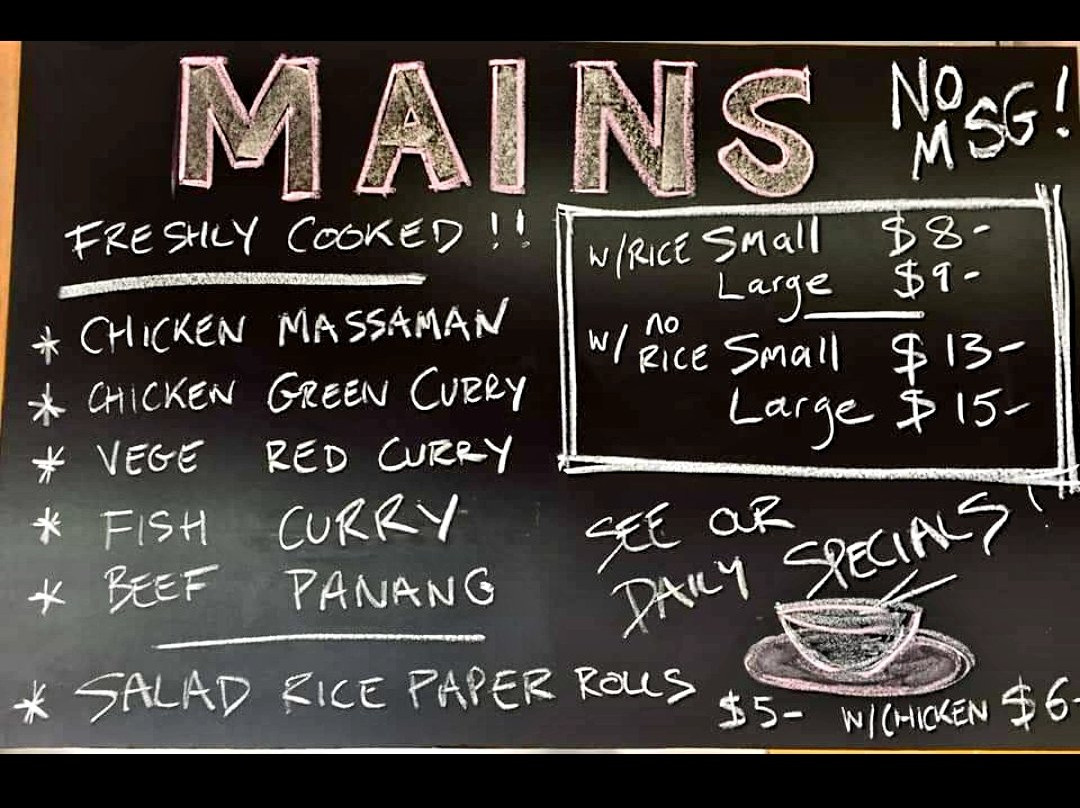 MAINS
NO
MSG!
FRESHLY COOKED !!
* CHICKEN MASSAMAN
* CHICKEN GREEN CURRY
* VEGE RED CURRY
* FISH CURRY
* BEEF PANANG
W/RICE Small $8-
Large $9-
W/ no RICE Small $13-
Large $15-
SEE OUR
DAILY SPECIALS!
* SALAD RICE PAPER ROLLS $5- W/CHICKEN $6-